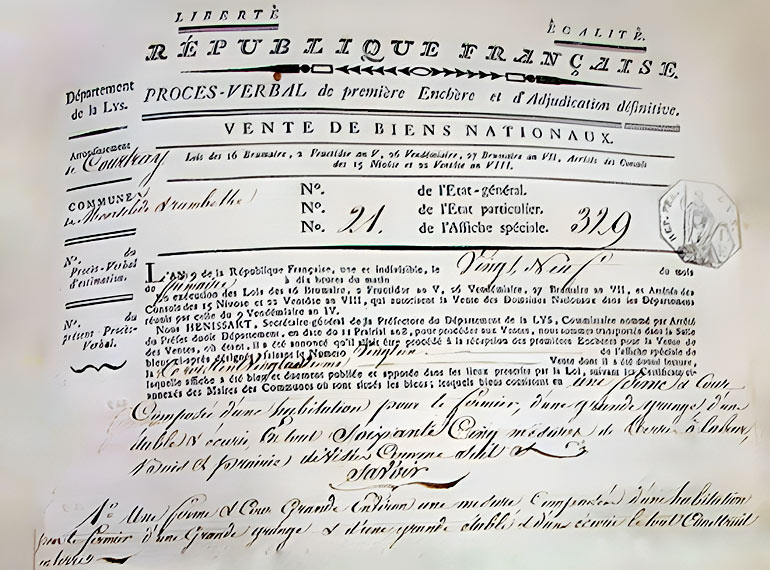 LIBERTÉ
ÉGALITÉ.
RÉPUBLIQUE FRANÇAISE.
PROCES-VERBAL de première Enchère et d'Adjudication définitive.
VENTE DE BIENS NATIONAUX.
Lois des 16 Brumaire, 2 Fructidor an V, 26 Vendémiaire, 27 Brumaire an VII, Arrêtés des Consuls
des 15 Nivose et 22 Ventôse an VIII.
Département
de la LYS.
Arrondissement
de Courtray
COMMUNE
de
N°. du
Procès-Verbal
d'estimation.
N°. du
présent Procès-
Verbal.
N°. de l'Etat-général.
N°. 21. de l'Etat particulier.
N°. de l'Affiche spéciale. 329
L'AN 9 de la République Française, une et indivisible, le Vingt Neuf du mois
de à dix heures du matin
En exécution des Lois des 16 Brumaire, 2 Fructidor an V, 26 Vendémiaire, 27 Brumaire an VII, et Arrêtés des
Consuls des 15 Nivose et 22 Ventôse an VIII, qui autorisent la Vente des Domaines Nationaux dans les Départemens
réunis par celle du 9 Vendémiaire an IV.
Nous HENISSART, Secrétaire-général de la Préfecture du Département de la LYS, Commissaire nommé par Arrêté
du Préfet dudit Département, en date du 11 Prairial an 8, pour procéder aux Ventes, nous sommes transportés dans la Salle
des Ventes, où étant, il a été annoncé qu'il allait être procédé à la réception des premières Enchères pour la Vente de
bleus ci-après désignés faisant le Numéro Vingt un de l'affiche spéciale de
Vente dont il a été donné lecture,
laquelle affiche a été bien et duement publiée et apposée dans les lieux prescrits par la Loi, suivant les Certificats
annexés des Maires des Communes où sont situés les biens; lesquels biens consistent en une ferme & Cour
Composée d'une habitation pour le fermier, d'une grande grange d'une
étable & écurie, En tout Soixante Cinq mesures de terre à labour,
&
Savoir
1° Une ferme & Cour Grande Environ une mesure Composée d'une habitation
pour le fermier d'une Grande grange & d'une grande étable & d'une écurie le tout Construit